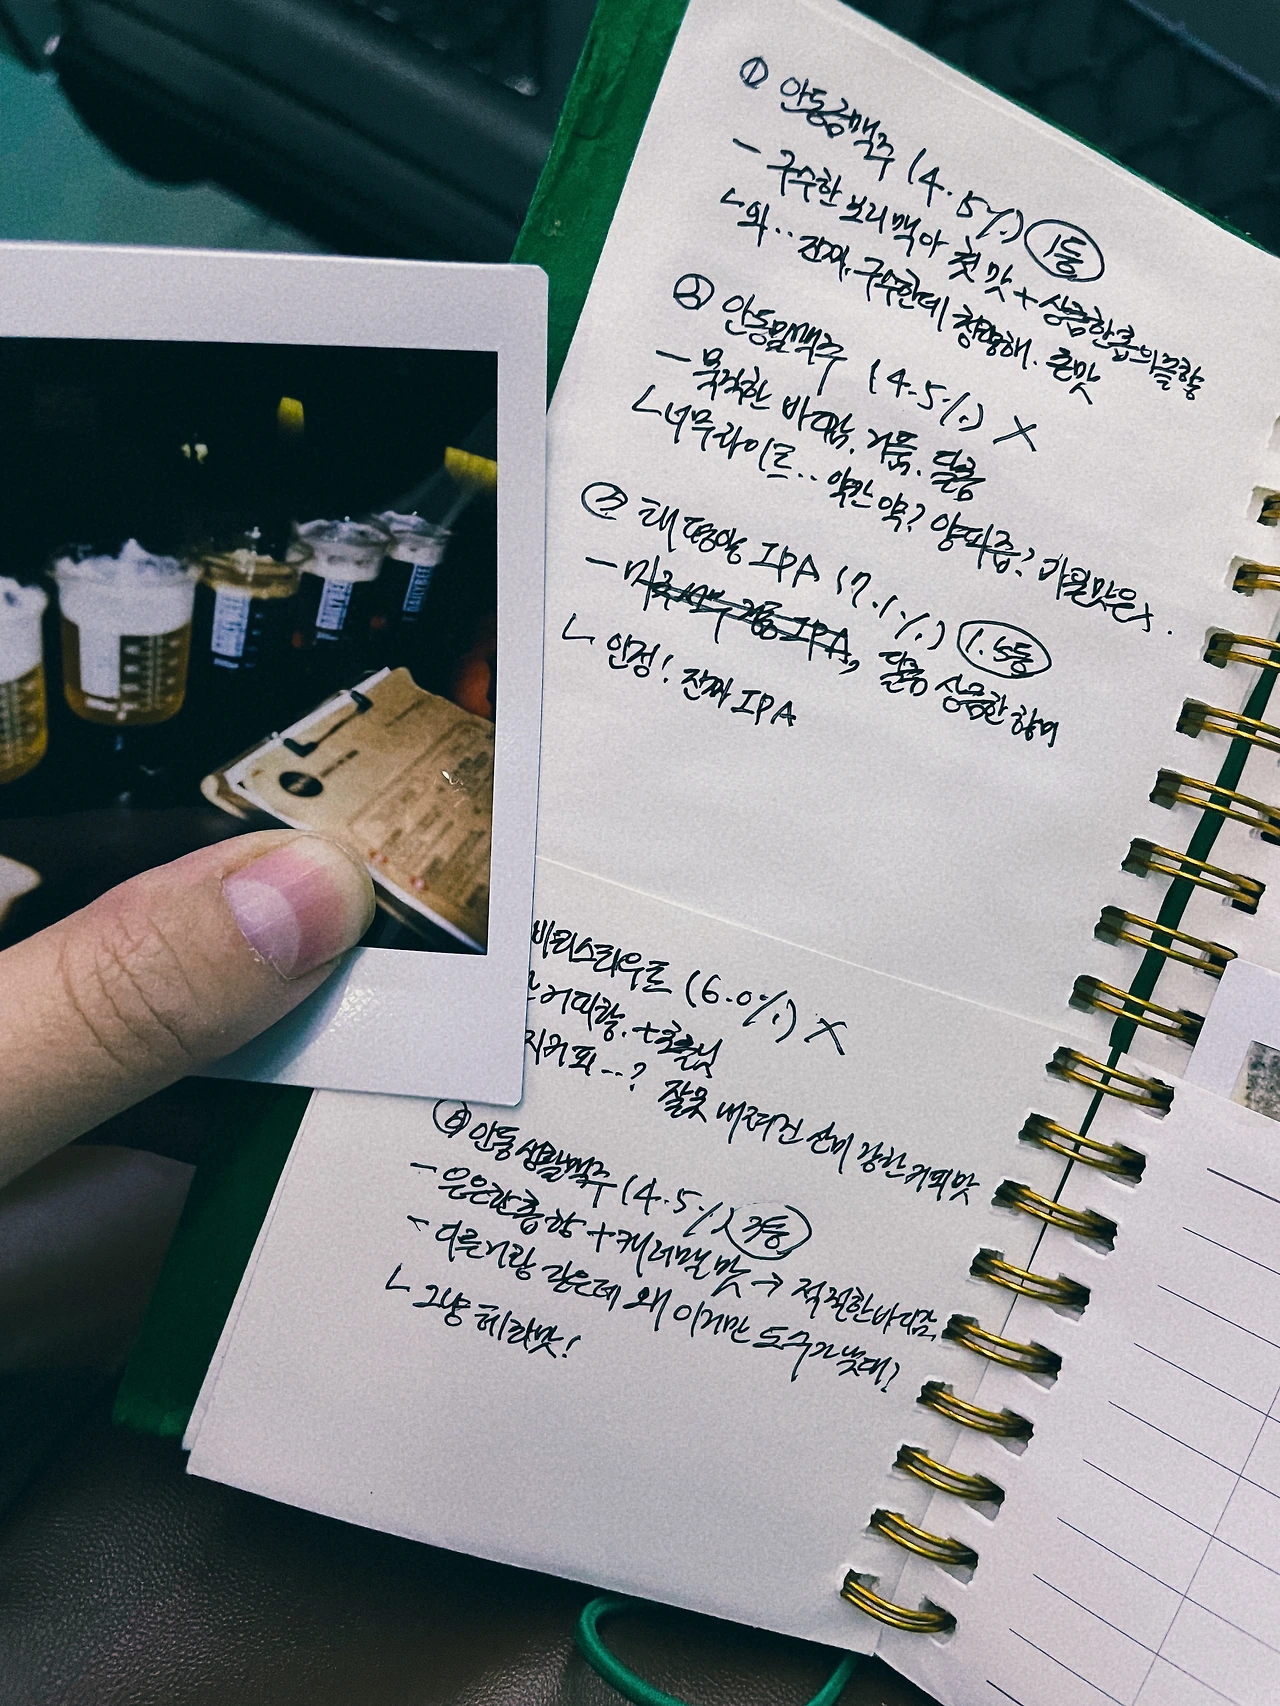 ① 안동금맥주 (4.5%) 1등
- 구수한 보리 맥아 첫맛 + 상큼한 홉의 끝향
ㄴ 와.. 진짜, 구수한데 청량해. 존맛
② 안동밀맥주 (4.5%) X
- 묵직한 바디감. 거품. 달콤
ㄴ 너무 라이트.. 약간 약? 양파즙? 과일맛은 x.
③ 태평양 IPA (7.1%) 1.5등
- 달콤 상큼한 향미
ㄴ 인정! 진짜 IPA
스타우트 (6.0%) X
커피향. +초콜릿
커피...? 잘못 내려진 산미 강한 커피맛
안동생활맥주 (4.5%)
- 은은한 홉향 + 캐러멜맛 → 적적한 바디감,
- 다른거랑 같은데 왜 이거만 도수가 낮대?
ㄴ 그냥 테라맛!